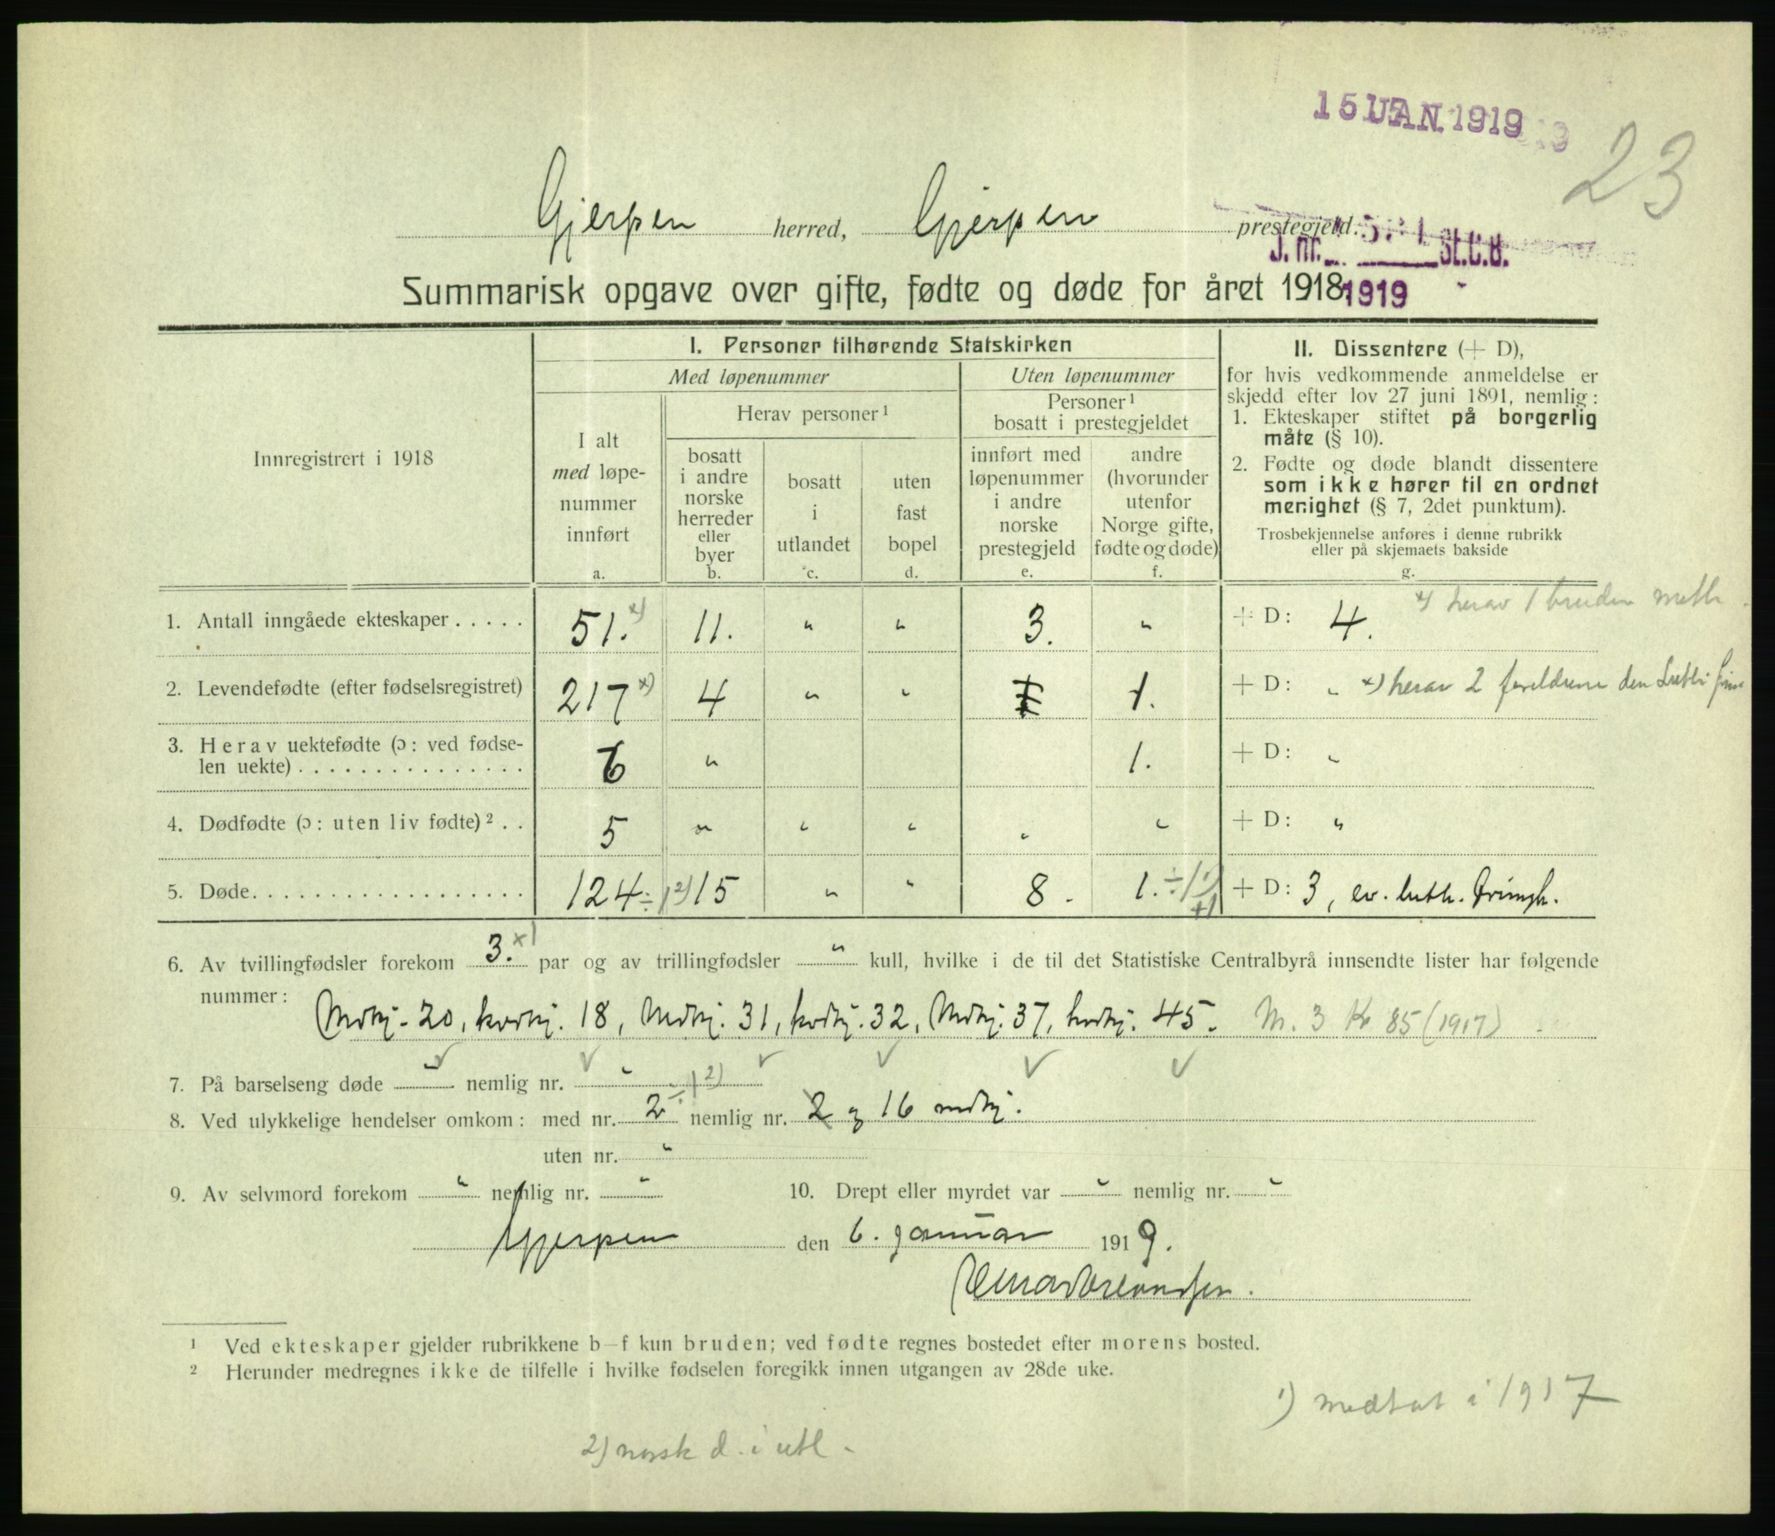 15 JAN. 1919
23
Gjerpen herred, Gjerpen prestegjeld.
J. nr. St.C.B.
1919
Summarisk opgave over gifte, fødte og døde for året 1918
Innregistrert i 1918
I. Personer tilhørende Statskirken
Med løpenummer
Uten løpenummer
I alt
med løpe-
nummer
innført
a.
Herav personer ¹
bosatt
i andre
norske
herreder
eller
byer
b.
bosatt
i
utlandet
c.
uten
fast
bopel
d.
Personer ¹
bosatt i prestegjeldet
innført med
løpenummer
i andre
norske
prestegjeld
e.
andre
(hvorunder
utenfor
Norge gifte,
fødte og døde)
f.
II. Dissentere (+ D),
for hvis vedkommende anmeldelse er
skjedd efter lov 27 juni 1891, nemlig:
1. Ekteskaper stiftet på borgerlig
måte (§ 10).
2. Fødte og døde blandt dissentere
som ikke hører til en ordnet
menighet (§ 7, 2det punktum).
Trosbekjennelse anføres i denne rubrikk
eller på skjemaets bakside
g.
1. Antall inngåede ekteskaper . . . . . 51. x) 11. " " 3. " + D: 4. x) herav 1 bruden meth.
2. Levendefødte (efter fødselsregistret) 217 x) 4 " " 1 1. + D: " x) herav 2 foreldrene den
3. Herav uektefødte (ɔ: ved fødse-
len uekte) . . . . . . . . . . . . . . . 6 " 1. + D: "
4. Dødfødte (ɔ: uten liv fødte) ² . . 5 " " " " " + D: "
5. Døde. . . . . . . . . . . . . . . . . . 124 ÷ 1 2) 15 " " 8. 1. ÷ 1 1) +1 + D: 3, ev. luth. frimgh.
6. Av tvillingfødsler forekom 3. x) par og av trillingfødsler " kull, hvilke i de til det Statistiske Centralbyrå innsendte lister har følgende
nummer: Mdkj. 20, kvdkj. 18, Mdkj. 31, kvdkj. 32, Mdkj. 37, kvdkj. 45. M. 3 Kv 85 (1917)
7. På barselseng døde " nemlig nr. "
8. Ved ulykkelige hendelser omkom: med nr. 2 ÷ 1 2) nemlig nr. 2 og 16 mdkj.
uten nr. "
9. Av selvmord forekom " nemlig nr. " 10. Drept eller myrdet var " nemlig nr. "
Gjerpen den 6. januar 1919.
¹ Ved ekteskaper gjelder rubrikkene b–f kun bruden; ved fødte regnes bostedet efter morens bosted.
² Herunder medregnes ikke de tilfelle i hvilke fødselen foregikk innen utgangen av 28de uke.
1) medtat i 1917
2) norsk d. i utl.